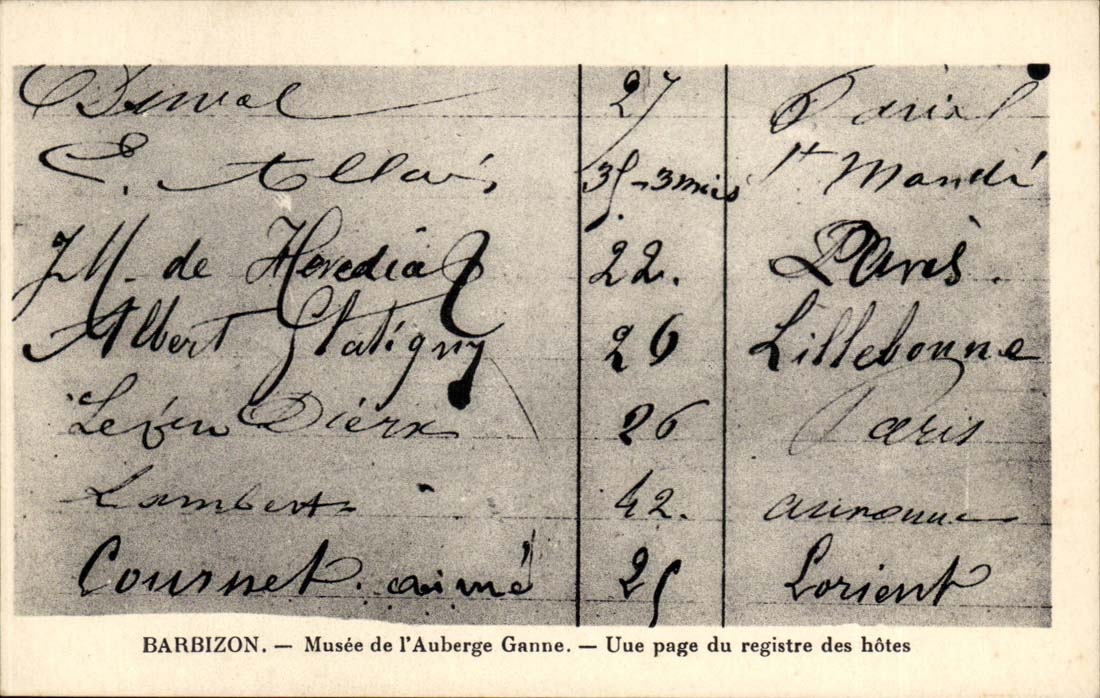 27 Paris
E. Allais 35 - 3 mois St Mandé
JM. de Heredia 22. Paris.
Albert Glatigny 26 Lillebonne
Dierx 26 Paris
Lambert 42.
Cournet. aimé 25 Lorient
BARBIZON. — Musée de l'Auberge Ganne. — Uue page du registre des hôtes